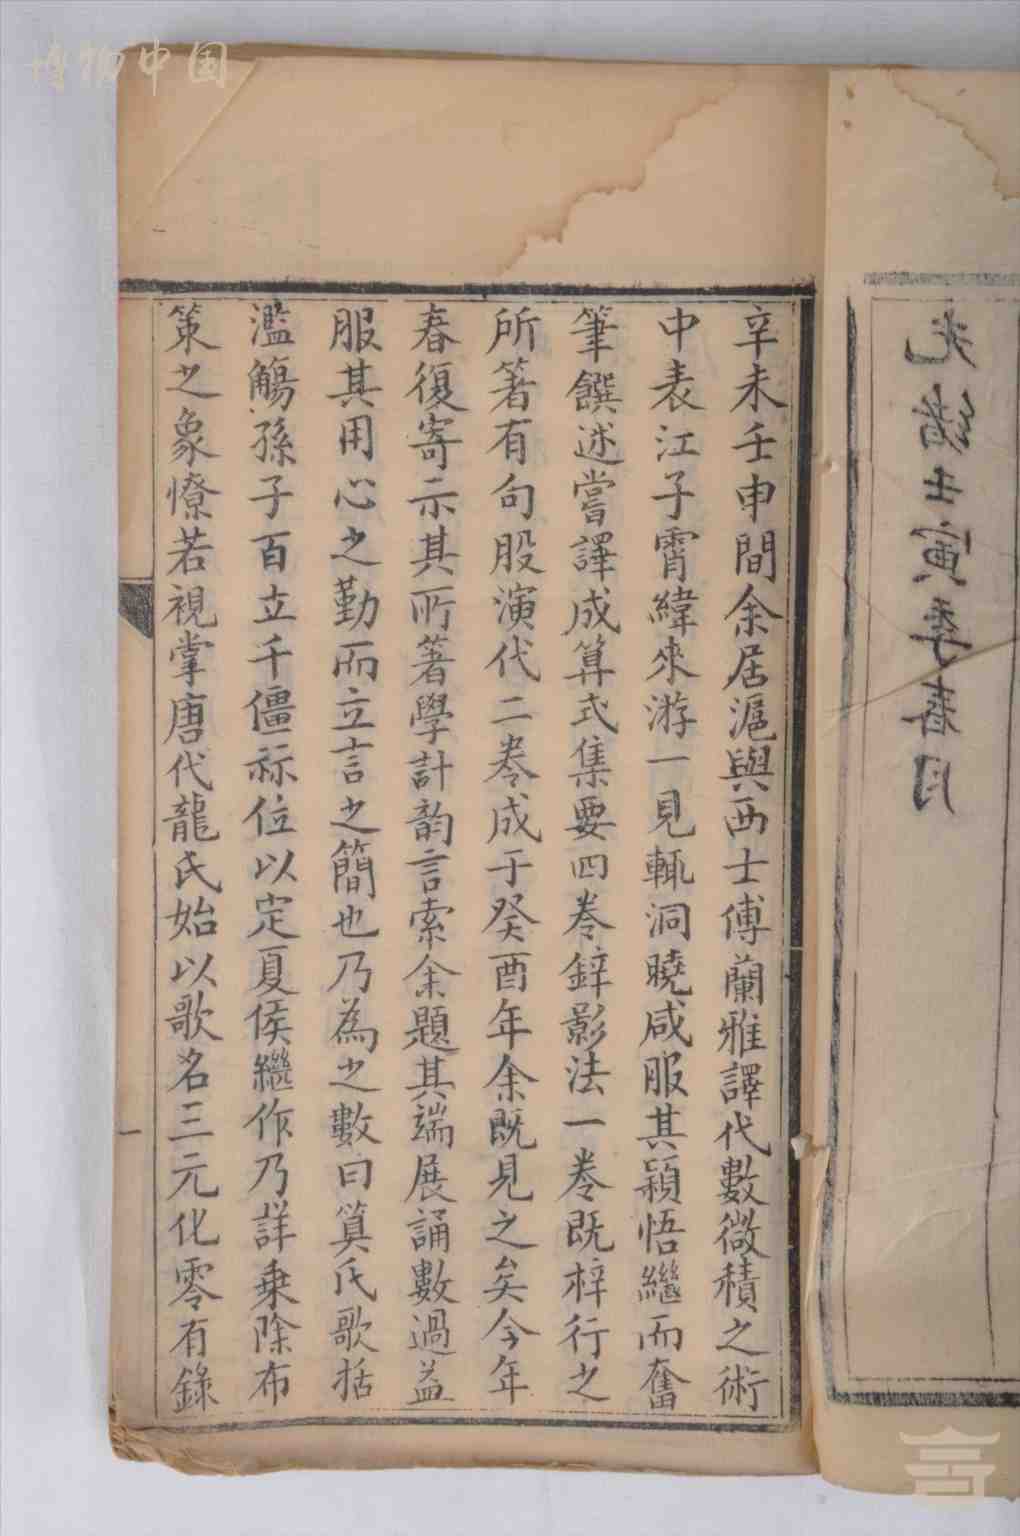 博物中国
光緒壬寅季春月
辛未壬申間余居滬與西士傅蘭雅譯代數微積之術
中表江子霄緯來游一見輒洞曉咸服其穎悟繼而奮
筆饌述嘗譯成算式集要四卷鋅影法一卷既梓行之
所箸有句股演代二卷成于癸酉年余既見之矣今年
春復寄示其所箸學計韵言索余題其端展誦數過益
服其用心之勤而立言之簡也乃為之敷曰算氏歌括
濫觴孫子百立千僵祘位以定夏侯繼作乃詳乗除布
策之象憭若視掌唐代龍氏始以歌名三元化零有錄
一